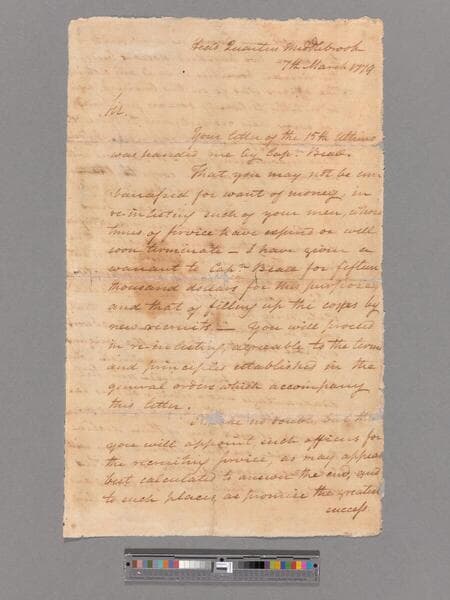 Head Quarters Middlebrook
7th March 1779
Sir
Your letter of the 15th Ultimo
was handed me by Capn. Beall.
That you may not be em
barrassed for want of money, in
re-inlisting such of your men, whose
times of service have expired or will
soon terminate — I have given a
warrant to Capn. Beall for fifteen
thousand dollars for this purpose,
and that of filling up the corps by
new recruits — You will proceed
in re-inlisting, agreeable to the terms
and principles established in the
general orders which accompany
this letter.
I make no doubt but th
you will appoint such officers for
the recruiting service, as may appear
best calculated to answer the end, and
to such places as promise the greatest
success